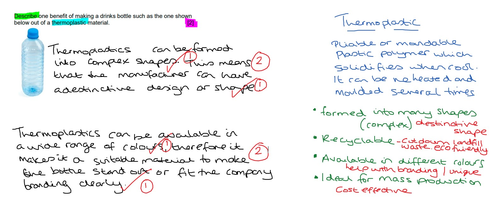 Describe one benefit of making a drinks bottle such as the one shown
below out of a thermoplastic material.
Thermoplastics can be formed
into complex shapes. This means
that the manufacturer can have
a distinctive design or shape
1
2
1
Thermoplastics can be available in
a wide range of colours therefore it
makes it a suitable material to make
the bottle stand out or fit the company
branding clearly
1
2
1
Thermoplastic
Pliable or mandable
Plastic polymer which
solidifies when cool.
It can be reheated and
molded several times
• formed into many shapes
(complex) distinctive
shape
• Recyclable - cut down landfill
waste. eco friendly
• Available in different colours
help with branding / unique
• Ideal for mass production
Cost effective